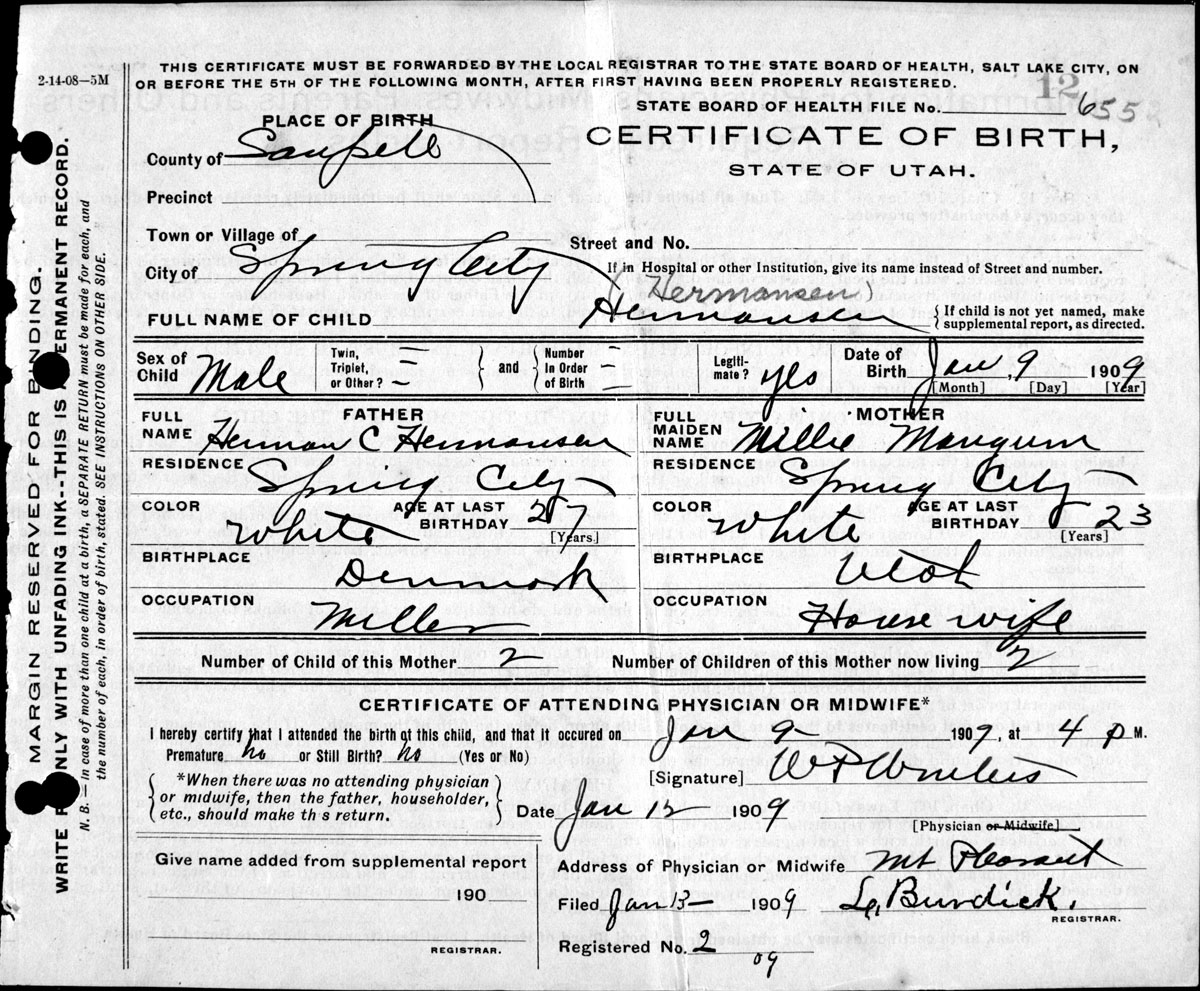 2-14-08—5M
THIS CERTIFICATE MUST BE FORWARDED BY THE LOCAL REGISTRAR TO THE STATE BOARD OF HEALTH, SALT LAKE CITY, ON
OR BEFORE THE 5TH OF THE FOLLOWING MONTH, AFTER FIRST HAVING BEEN PROPERLY REGISTERED.
12
STATE BOARD OF HEALTH FILE No. 655
PLACE OF BIRTH
CERTIFICATE OF BIRTH,
County of Sanpete
STATE OF UTAH.
Precinct
Town or Village of
Street and No.
City of Spring City
If in Hospital or other Institution, give its name instead of Street and number.
(Hermansen)
FULL NAME OF CHILD Hermansen
{If child is not yet named, make
supplemental report, as directed.
Sex of Child Male
Twin, Triplet, or Other?
and
Number In Order of Birth
Legiti-mate? yes
Date of Birth Jan 9 1909
[Month] [Day] [Year]
FATHER
FULL NAME Herman C Hermansen
RESIDENCE Spring City
COLOR White
AGE AT LAST BIRTHDAY 27
[Years.]
BIRTHPLACE Denmark
OCCUPATION Miller
MOTHER
FULL MAIDEN NAME Millie Mangum
RESIDENCE Spring City
COLOR White
AGE AT LAST BIRTHDAY 23
[Years]
BIRTHPLACE Utah
OCCUPATION House wife
Number of Child of this Mother 2
Number of Children of this Mother now living 2
CERTIFICATE OF ATTENDING PHYSICIAN OR MIDWIFE*
I hereby certify that I attended the birth of this child, and that it occured on Jan 9 1909, at 4 P M.
Premature no or Still Birth? no (Yes or No)
*When there was no attending physician
or midwife, then the father, householder,
etc., should make th s return.
[Signature] W P
Date Jan 12 1909
[Physician or Midwife]
Give name added from supplemental report
190
REGISTRAR.
Address of Physician or Midwife Mt Pleasant
Filed Jan 13 1909 Burdick.
REGISTRAR.
Registered No. 2
09
MARGIN RESERVED FOR BINDING.
WRITE ONLY WITH UNFADING INK--THIS IS PERMANENT RECORD.
N. B.—In case of more than one child at a birth, a SEPARATE RETURN must be made for each, and
the number of each, in order of birth, stated. SEE INSTRUCTIONS ON OTHER SIDE.